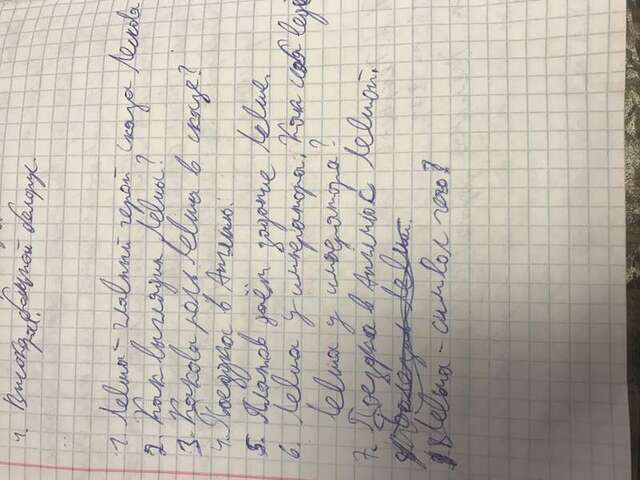 1. Левша - главный герой сказа Лескова
2. Как выглядит Левша?
3. Какова роль Левши в сказе?
4. Поездка в Англию.
5. Платов даёт задание Левше.
6. Левша у императора. Как себя ведё
Левша у императора?
7. Поездка в Англию с Левшой.
8. Левша - символ чего?